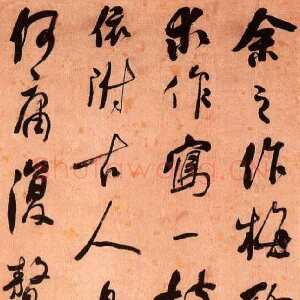 余之作梅
求作写一枝
依附古人
何庸復